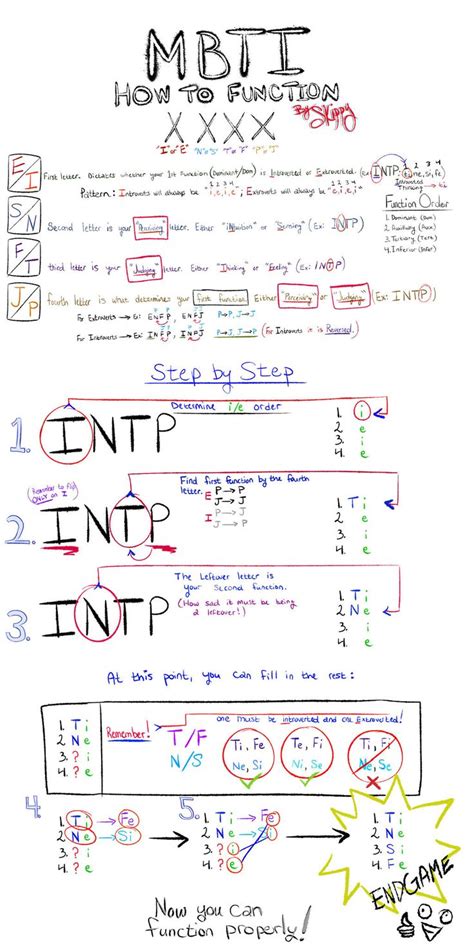 MBTI
HOW TO FUNCTION
By Skippy
X X X X
"I" or "E" "N" or "S" "T" or "F" "P" or "J"
E/I First letter. Dictates whether your 1st Function (Dominant/Dom) is Introverted or Extroverted. (ex: INTP:
1 2 3 4
Introverted Thinking
Pattern: Introverts will always be "i,e,i,e"; Extroverts will always be "e,i,e,i"
1 2 3 4
1 2 3 4
Function Order
1. Dominant (Dom)
2. Auxiliary (Aux)
3. Tertiary (Tert)
4. Inferior (Infer)
S/N Second letter is your "Perceiving" letter. Either "iNtuition" or "Sensing" (Ex: INTP)
F/T third letter is your "Judging" letter. Either "Thinking" or "Feeling" (Ex: INTP)
J/P fourth letter is what determines your first function. Either "Perceiving" or "Judging" (Ex: INTP)
For Extroverts → Ex: ENFP ENFJ P→P, J→J
For Introverts → Ex: INFP INFJ P→J, J→P (For Introverts it is Reversed.)
Step by Step
Determine i/e order
1. INTP
1. i
2 e
3. i
4. e
(Remember to flip ONLY on I)
Find first function by the fourth
letter.
E P → P
J → J
I P → J
J → P
2. INTP
1. Ti
2 e
3. i
4. e
The Leftover letter is
your Second function.
(How sad it must be being
a leftover!)
3. INTP
1. Ti
2 Ne
3. i
4. e
At this point, you can fill in the rest:
1. Ti
2 Ne
3. ? i
4. ? e
Remember!
one must be introverted and one Extroverted!
T/F
N/S
Ti, Fe
Ne, Si
Te, Fi
Ni, Se
Ti, Fi
Ne, Se
4.
1. Ti → Fe
2 Ne → Si
3. ? i
4. ? e
5.
1. Ti → Fe
2 Ne → Si
3. ? i
4. ? e
1. Ti
2 Ne
3. Si
4. Fe
ENDGAME
Now you can
function properly!